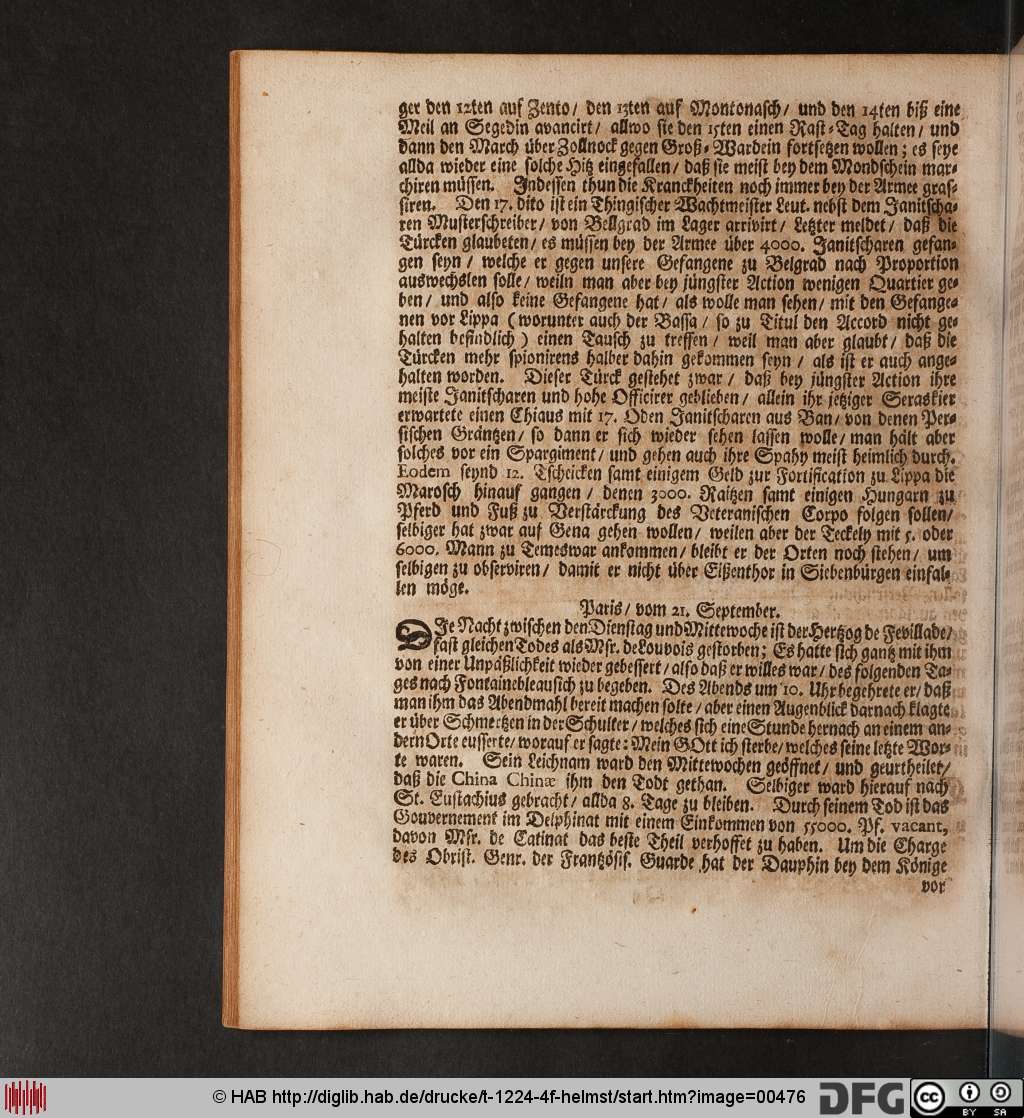 ger den 12ten auf Zento/ den 13ten auf Montonasch/ und den 14ten biß eine
Meil an Segedin avancirt/ allwo sie den 15ten einen Rast-Tag halten/ und
dann den March über Zollnock gegen Groß-Wardein fortsetzen wollen; es seye
allda wieder eine solche Hitz eingefallen/ daß sie meist bey dem Mondschein mar-
chiren müssen. Indessen thun die Kranckheiten noch immer bey der Armee gras-
siren. Den 17. dito ist ein Thingischer Wachtmeister Leut. nebst dem Janitscha-
ren Musterschreiber/ von Bellgrad im Lager arrivirt/ Letzter meldet/ daß die
Türcken glaubeten/ es müssen bey der Armee über 4000. Janitscharen gefan-
gen seyn/ welche er gegen unsere Gefangene zu Belgrad nach Proportion
auswechslen solle/ weiln man aber bey jüngster Action wenigen Quartier ge-
ben/ und also keine Gefangene hat/ als wolle man sehen/ mit den Gefange-
nen vor Lippa (worunter auch der Bassa/ so zu Titul den Accord nicht ge-
halten befindlich) einen Tausch zu treffen/ weil man aber glaubt/ daß die
Türcken mehr spionirens halber dahin gekommen seyn/ als ist er auch ange-
halten worden. Dieser Türck gestehet zwar/ daß bey jüngster Action ihre
meiste Janitscharen und hohe Officirer geblieben/ allein ihr jetziger Seraskier
erwartete einen Chiaus mit 17. Oden Janitscharen aus Ban/ von denen Per-
sischen Gräntzen/ so dann er sich wieder sehen lassen wolle/ man hält aber
solches vor ein Spargiment/ und gehen auch ihre Spahy meist heimlich durch.
Eodem seynd 12. Tscheicken samt einigem Geld zur Fortification zu Lippa die
Marosch hinauf gangen/ denen 3000. Raitzen samt einigen Hungarn zu
Pferd und Fuß zu Verstärckung des Veteranischen Corpo folgen sollen/
selbiger hat zwar auf Gena gehen wollen/ weilen aber der Teckely mit 5. oder
6000. Mann zu Temeswar ankommen/ bleibt er der Orten noch stehen/ um
selbigen zu observiren/ damit er nicht über Eißenthor in Siebenbürgen einfal-
len möge.
Paris/ vom 21. September.
DIe Nacht zwischen den Dienstag und Mittewoche ist der Hertzog de Fevillade/
fast gleichen Todes als Msr. de Louvois gestorben; Es hatte sich gantz mit ihm
von einer Unpäßlichkeit wieder gebessert/ also daß er willes war/ des folgenden Ta-
ges nach Fontainebleau sich zu begeben. Des Abends um 10. Uhr begehrete er/ daß
man ihm das Abendmahl bereit machen solte/ aber einen Augenblick darnach klagte
er über Schmertzen in der Schulter/ welches sich eine Stunde hernach an einem an-
dern Orte eusserte/ worauf er sagte: Mein GOtt ich sterbe/ welches seine letzte Wor-
te waren. Sein Leichnam ward den Mittewochen geöffnet/ und geurtheilet/
daß die China Chinæ ihm den Todt gethan. Selbiger ward hierauf nach
St. Eustachius gebracht/ allda 8. Tage zu bleiben. Durch seinem Tod ist das
Gouvernement im Delphinat mit einem Einkommen von 55000. Pf. vacant,
davon Msr. de Catinat das beste Theil verhoffet zu haben. Um die Charge
des Obrist. Genr. der Frantzösis. Guarde hat der Dauphin bey dem Könige
vor
© HAB http://diglib.hab.de/drucke/t-1224-4f-helmst/start.htm?image=00476
DFG
cc BY SA